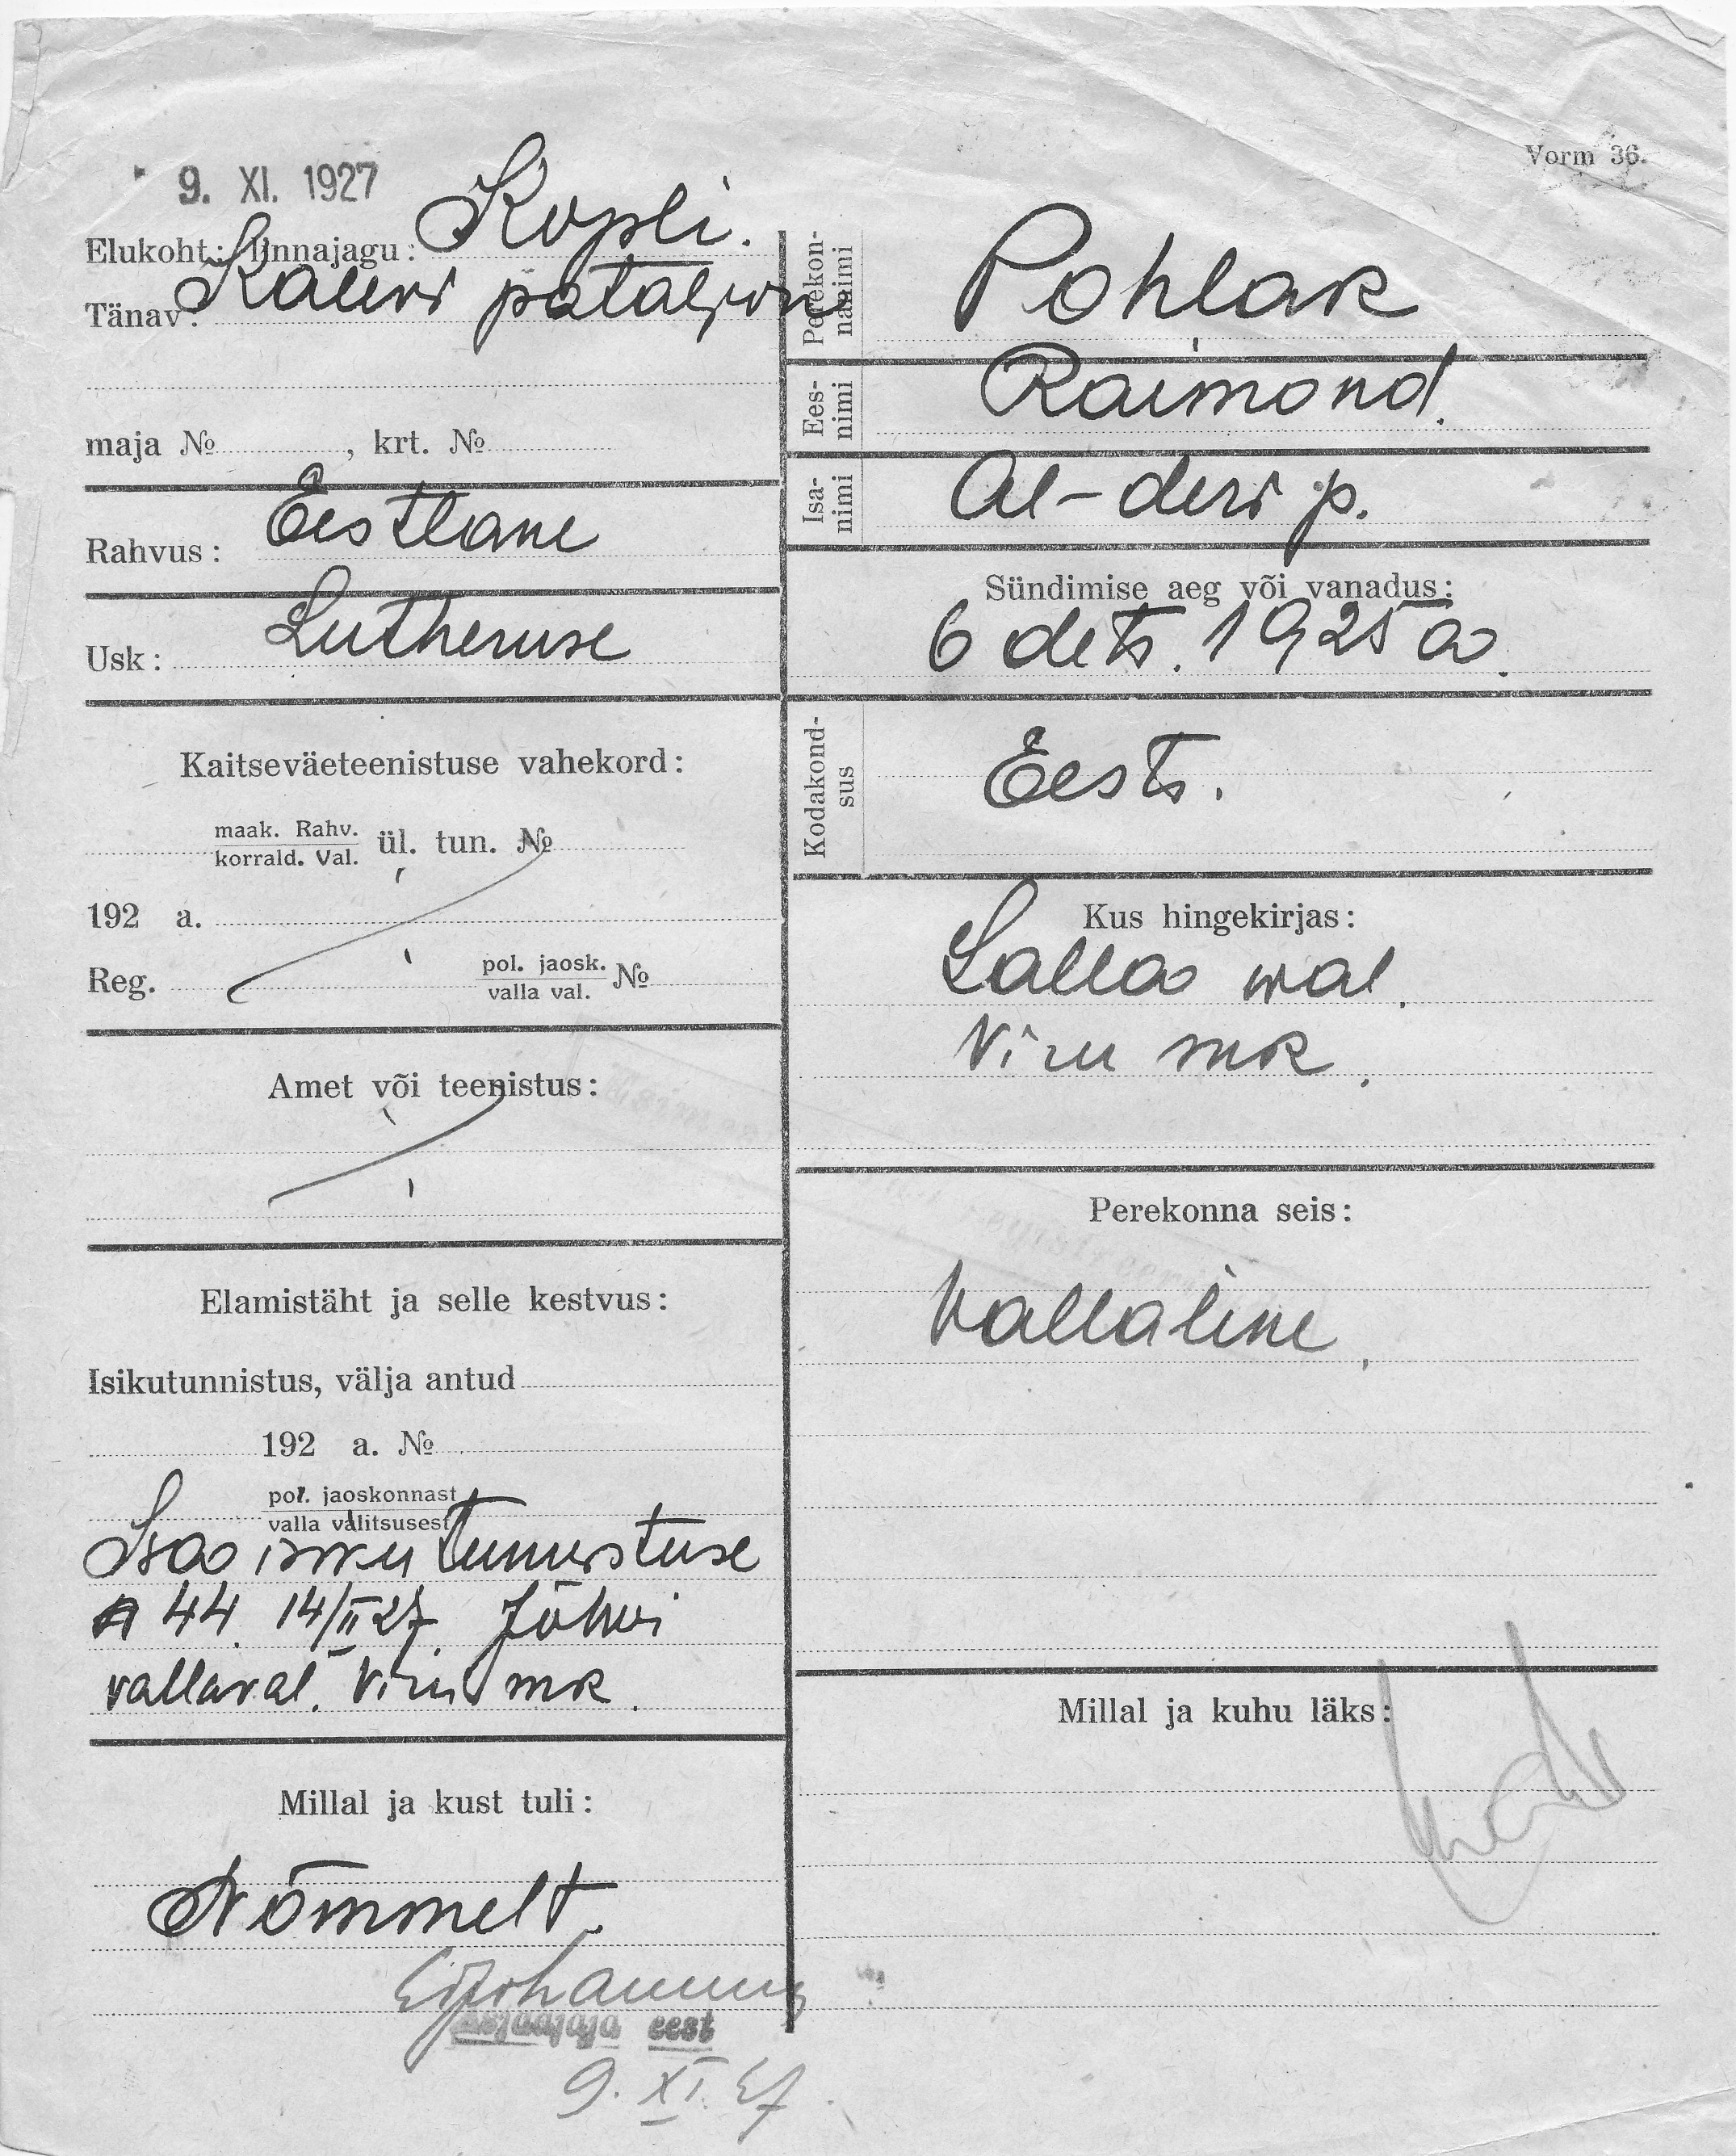 9. XI. 1927
Vorm 36.
Elukoht: linnajagu: Kopli.
Tänav: Kalevi pataljon
maja № , krt. №
Rahvus: Eestlane
Usk: Lutheruse
Kaitseväeteenistuse vahekord:
maak. Rahv.
korrald. Val. ül. tun. №
192 a.
Reg. pol. jaosk. №
valla val.
Amet või teenistus:
Elamistäht ja selle kestvus:
Isikutunnistus, välja antud
192 a. №
pol. jaoskonnast
valla valitsusest
Isa isiku tunnistuse
№ 44. 14/II 27. Jõhvi
vallaval. Viru mk.
Millal ja kust tuli:
Nõmmelt.
eest
9. XI. 27
Perekon-
nanimi
Pohlak
Ees-
nimi
Raimond.
Isa-
nimi
Al-deri p.
Sündimise aeg või vanadus:
6 dets. 1925 a.
Kodakond-
sus
Eesti.
Kus hingekirjas:
Salla wal.
Viru mk.
Perekonna seis:
Vallaline.
Millal ja kuhu läks: